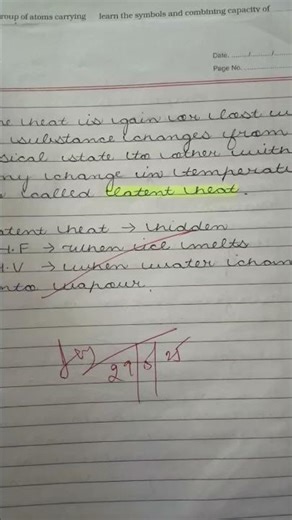 group of atoms carrying learn the symbols and combining capacity of
Date. ....../....../......
Page No.
he heat is gain or lost w
substance changes from
sical state to other with
ny change in temperat
called latent heat.
atent heat → hidden
H.F → when ice melts
H.V → when water chan
into vapour.
29 5 25